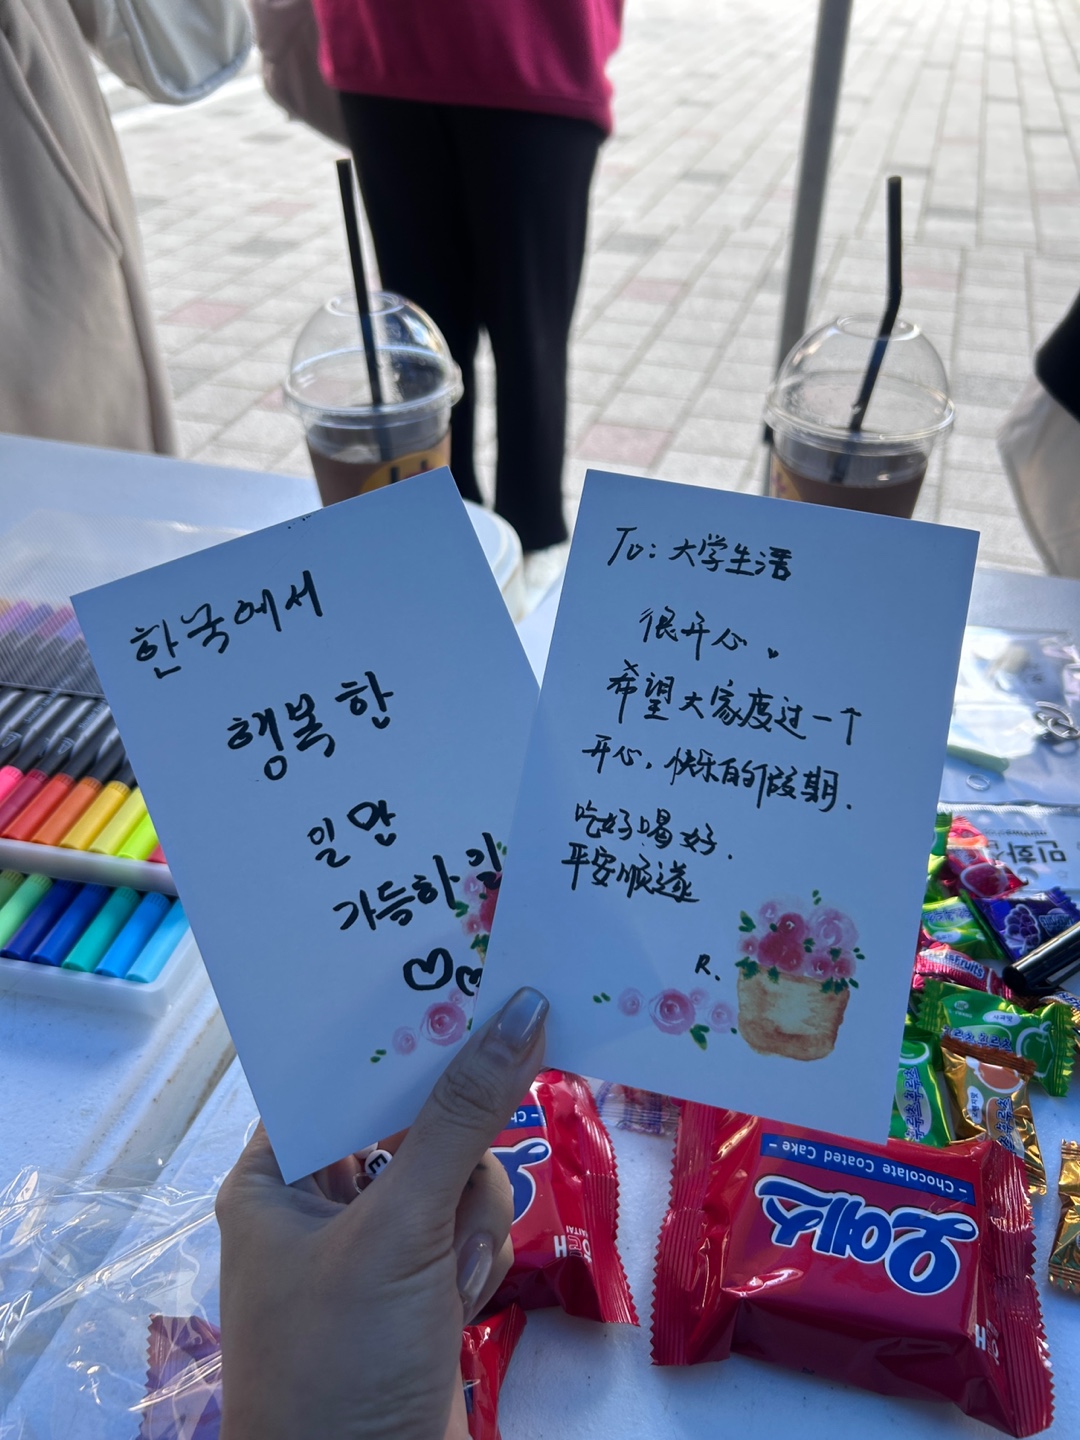 한국에서
행복한
일만
가득하길
To: 大学生活
很开心
希望大家度过一个
开心，快乐的假期.
吃好喝好.
平安顺遂
R.
민화
E
- Chocolate Coated Cake -
오예스